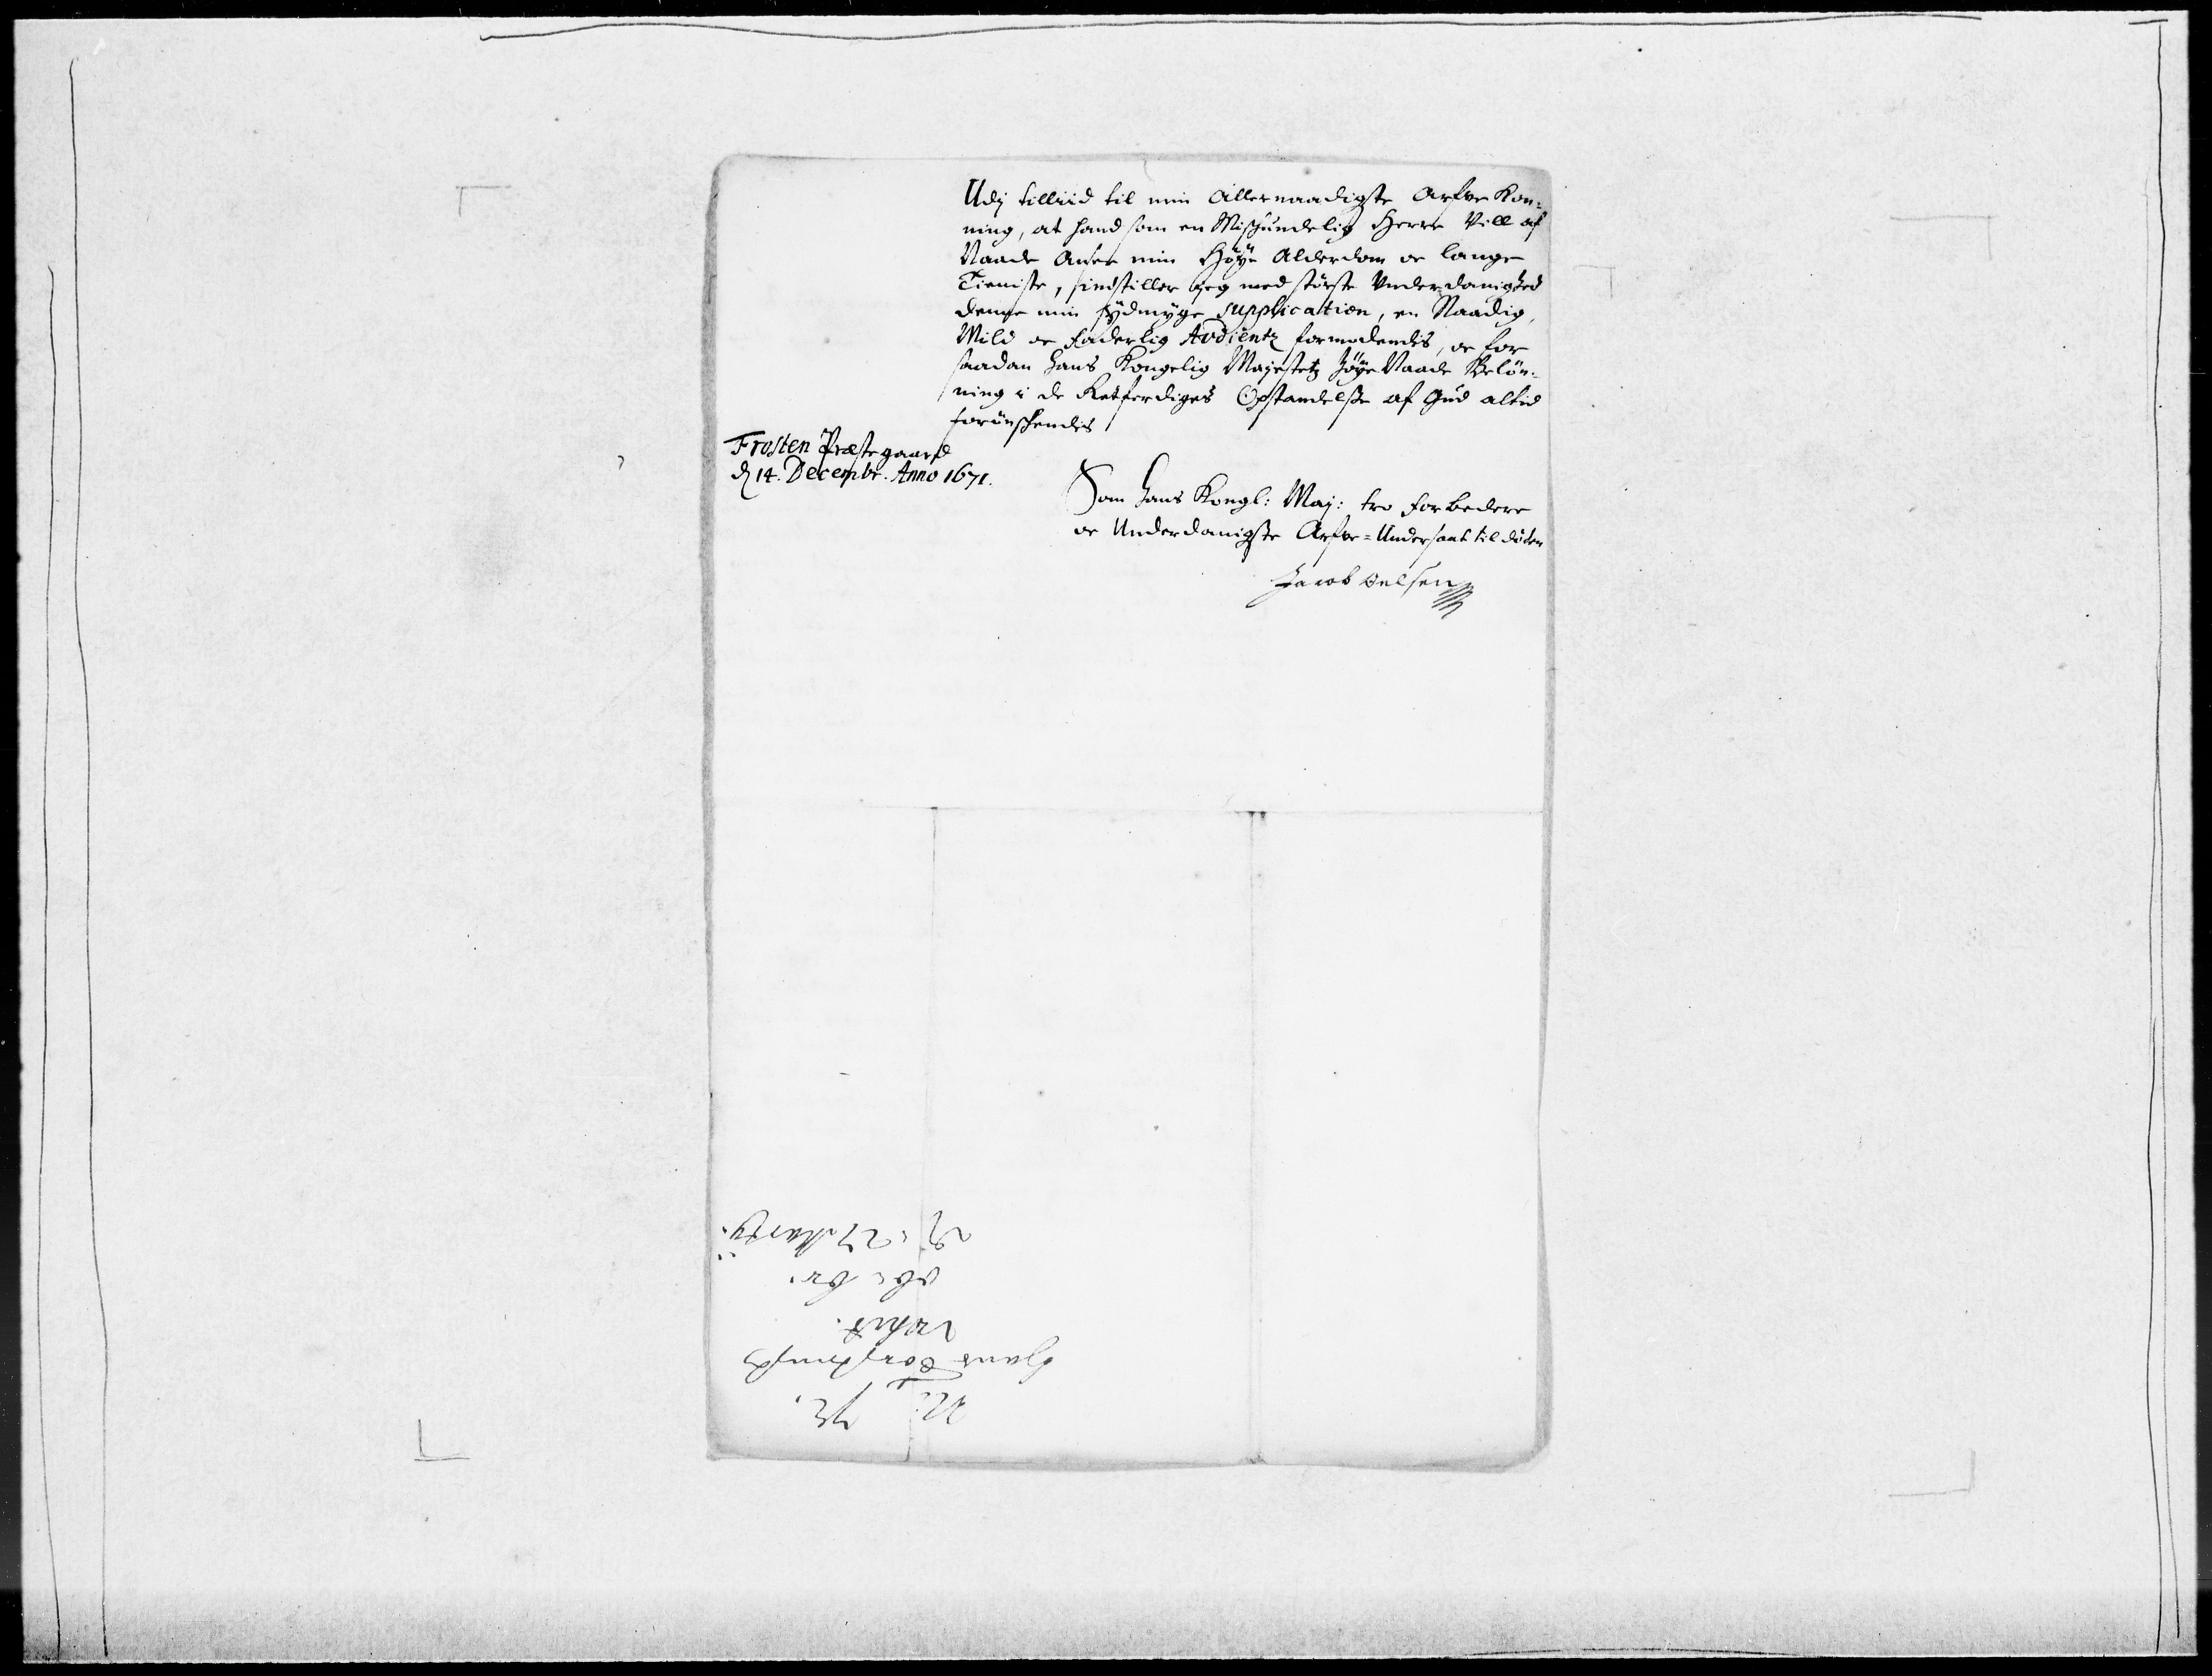 Udj tilliid til min Allernaadigste Arfve Kon-
ning, at hand som en Mischundelig Herre vill af
Naade Ansee min Høye Alderdom oc lange
Tieniste, hindstiller ieg med største Vnderdanighed
denne min hydmyge supplication, en Naadig,
Mild oc faderlig Avdientz formodendis, oc for
saadan hans Kongelig Majestetz høye Naade Beløn-
ning i de Retferdiges Opstandelsse af Gud altid
forønschendis
Frosten Præstegaard
d 14. Decembr. Anno 1671.
Som hans Kongl: Maj: tro forbedere
oc Underdanigste Arfve-Undersaat til døden
Jacob Oelsen
N: 72.
Hans
d: 27 Martij.